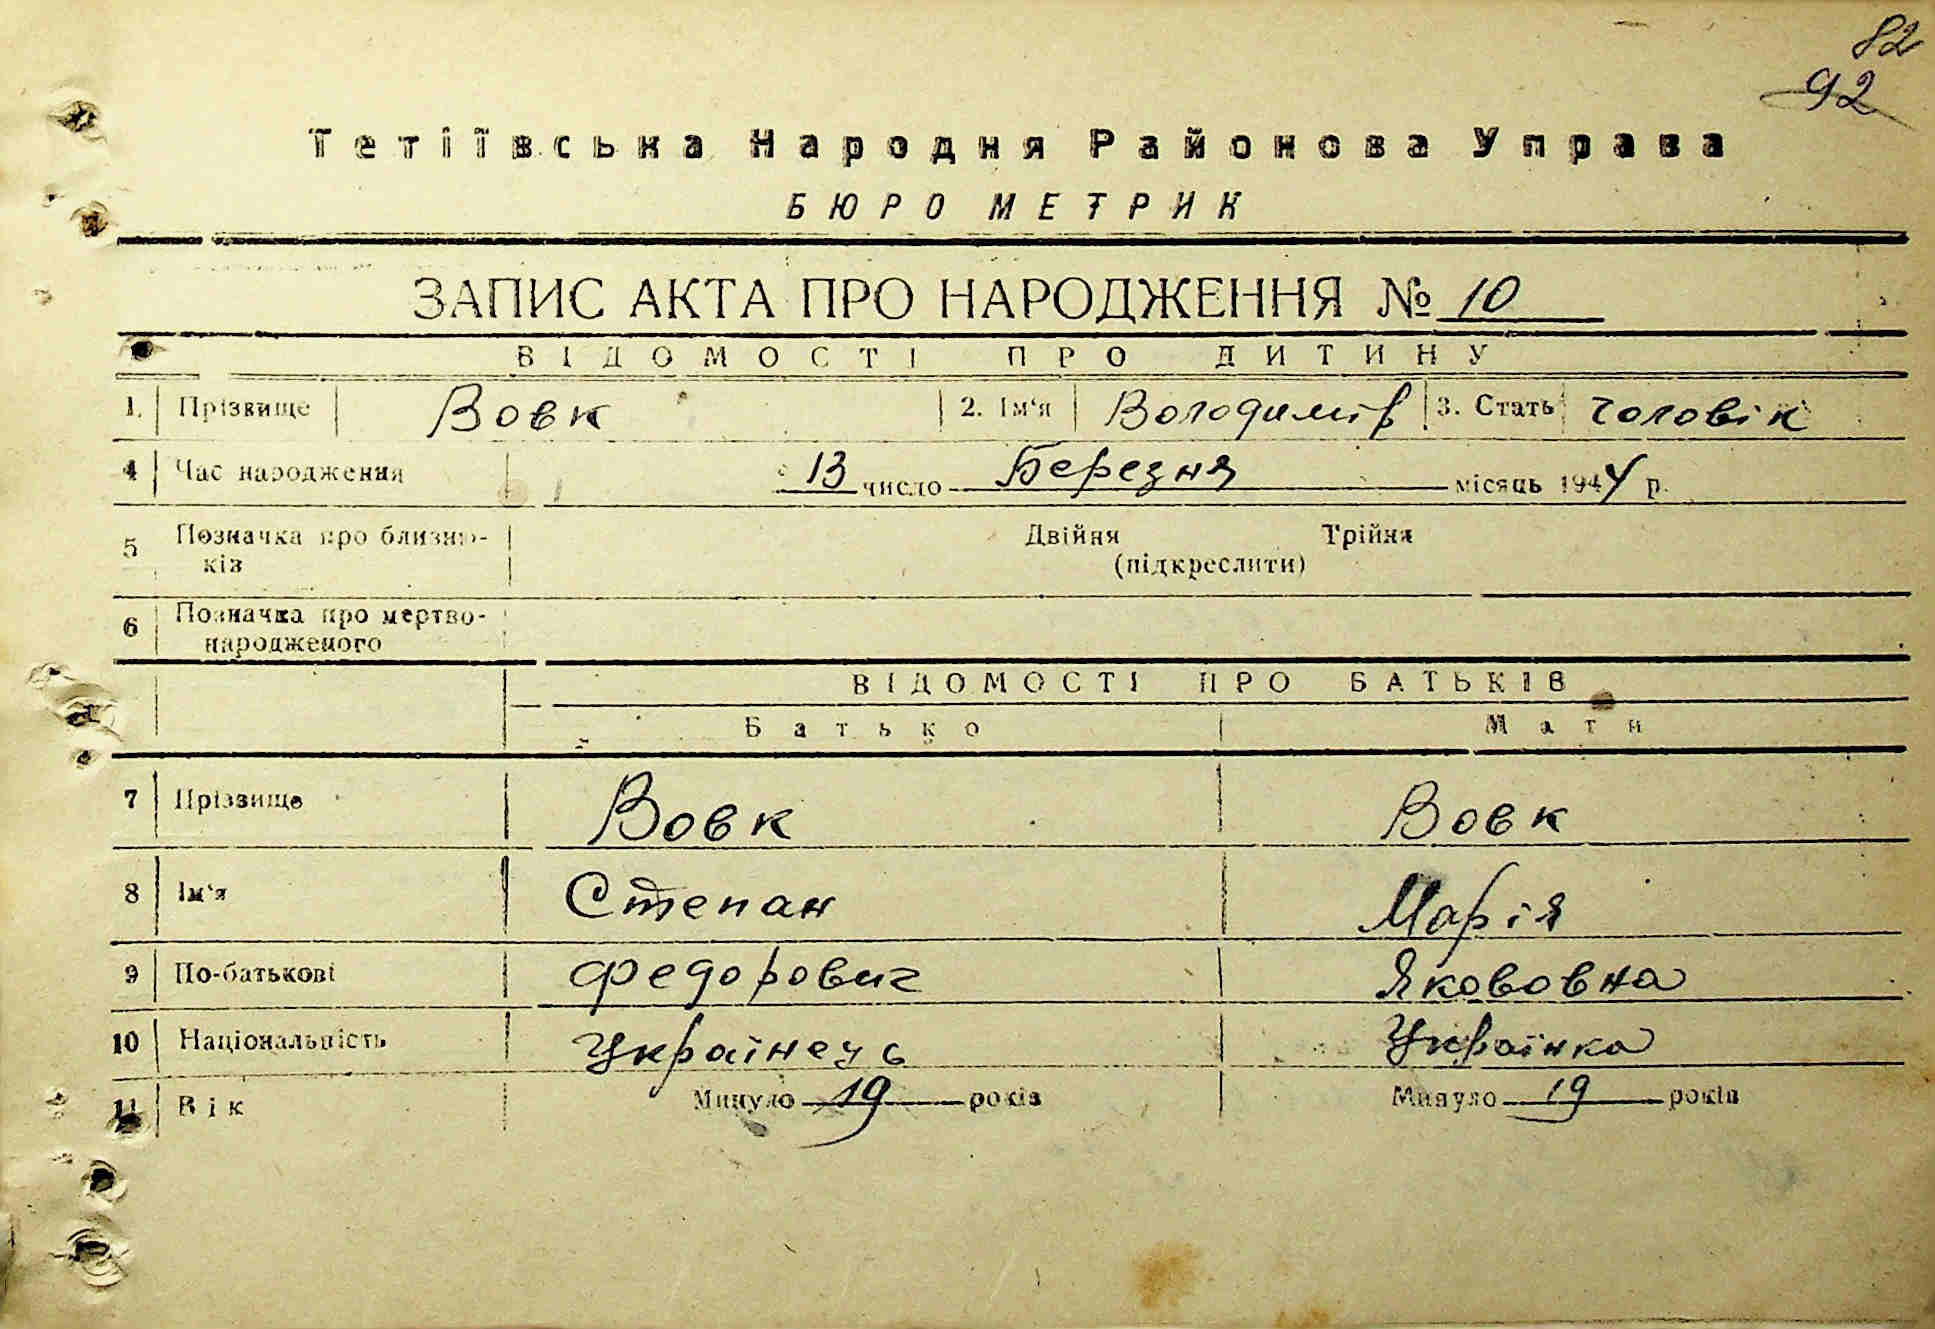 82
92
Тетіївська Народня Районова Управа
БЮРО МЕТРИК
ЗАПИС АКТА ПРО НАРОДЖЕННЯ № 10
ВІДОМОСТІ ПРО ДИТИНУ
1. Прізвище Вовк 2. Ім'я Володимір 3. Стать чоловік
4 Час народження 13 число Березня місяць 1944 р.
5 Позначка про близню- Двійня Трійня
ків (підкреслити)
6 Позначка про мертво-
народженого
ВІДОМОСТІ ПРО БАТЬКІВ
Батько Мати
7 Прізвище Вовк Вовк
8 Ім'я Степан Марія
9 По-батькові Федорович Якововна
10 Національність Українець Українка
11 Вік Минуло 19 років Минуло 19 років